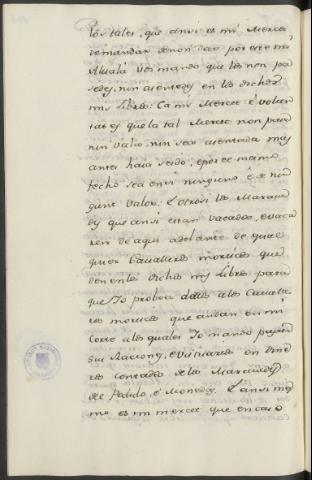 los tales, que ansi es mi Merced
demandar de non dar por este mi
Alvalá vos mando que los non pa
sedes, nin asentedes en los dichos
mis Libros: Ca mi Merced é volun
tat es que la tal Merced non pase
nin vala, nin sea asentada mas
antes haia seido, é por de manera
fecho sea ansi ninguno é de nin
gunt valor: E otrosi los Marave
dis que ansi estan vacados, e vaca
ren de aqui adelante de quales
quier Cavalleros moriscos que
tienen en los dichos mis Libros para
que Yo probea dellos a los Cavalle
ros moriscos que andan en mi
Corte a los quales Yo mando pagar
sus Raciones, e Vistuarios en dine
ros contados de los Maravedis
de Pedido, é Monedas. E ansi mes
mo es mi merced que en caso